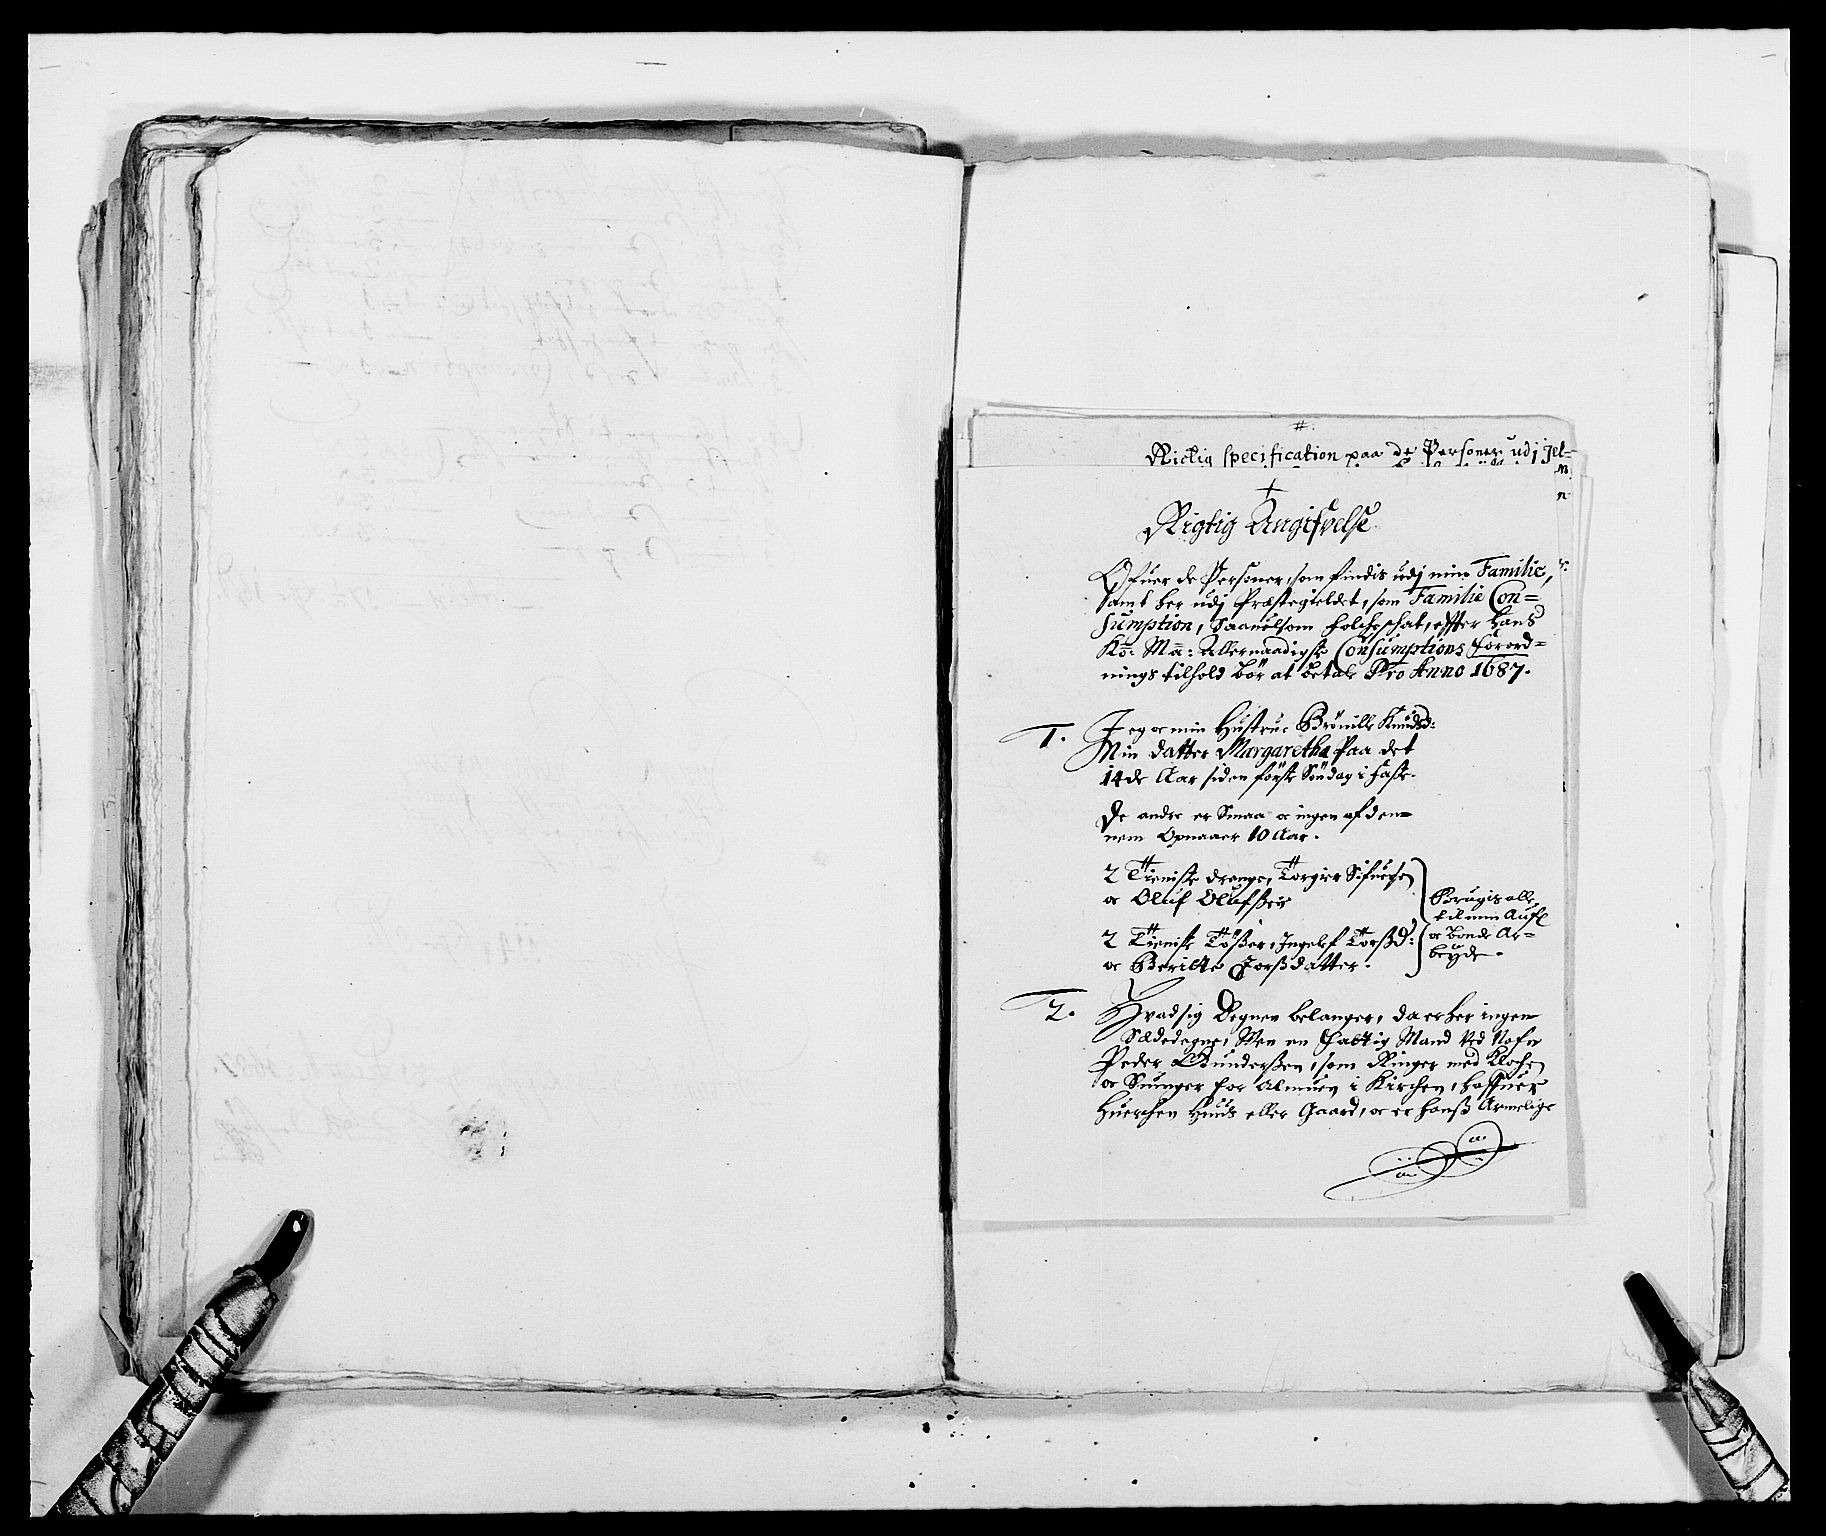 #.
Rictig specification paa de Personer udj Jel=
+
Rigtig Angifvelse
Ofuer de Personer, som findis udj min Familie,
samt her udj Præstegieldet, som Familie Con=
sumption, saauelsom folcheschat, effter Hans
Ko: Ma: Allernaadigste Consumptions Forord=
nings tilhold bør at betale Pro Anno 1687.
1. Jeg oc min Hustrue Brønille Knudsd:
Min datter Margaretha Paa det
14de Aar siden første Søndag i faste.
De andre er Smaa oc ingen af den=
nem Opnaaer 10 Aar.
2 Tieniste drenge, Torgier
oc Oluf Olufßen
2 Tieniste Tøßer, Ingelef Torßd:
oc Berithe Jorßdatter.
Brugis alle
til min Aufl
oc Bonde Ar=
beyde.
2. Hvad sig Degnen belanger, da er her ingen
Sædedegne, Men en fattig Mand Ved Nafn
Peder Gunderßen, som Ringer med Klochen
oc Siunger for Almuen i Kirchen, haffuer
huerchen Huus eller Gaard, oc er hanß Armelige